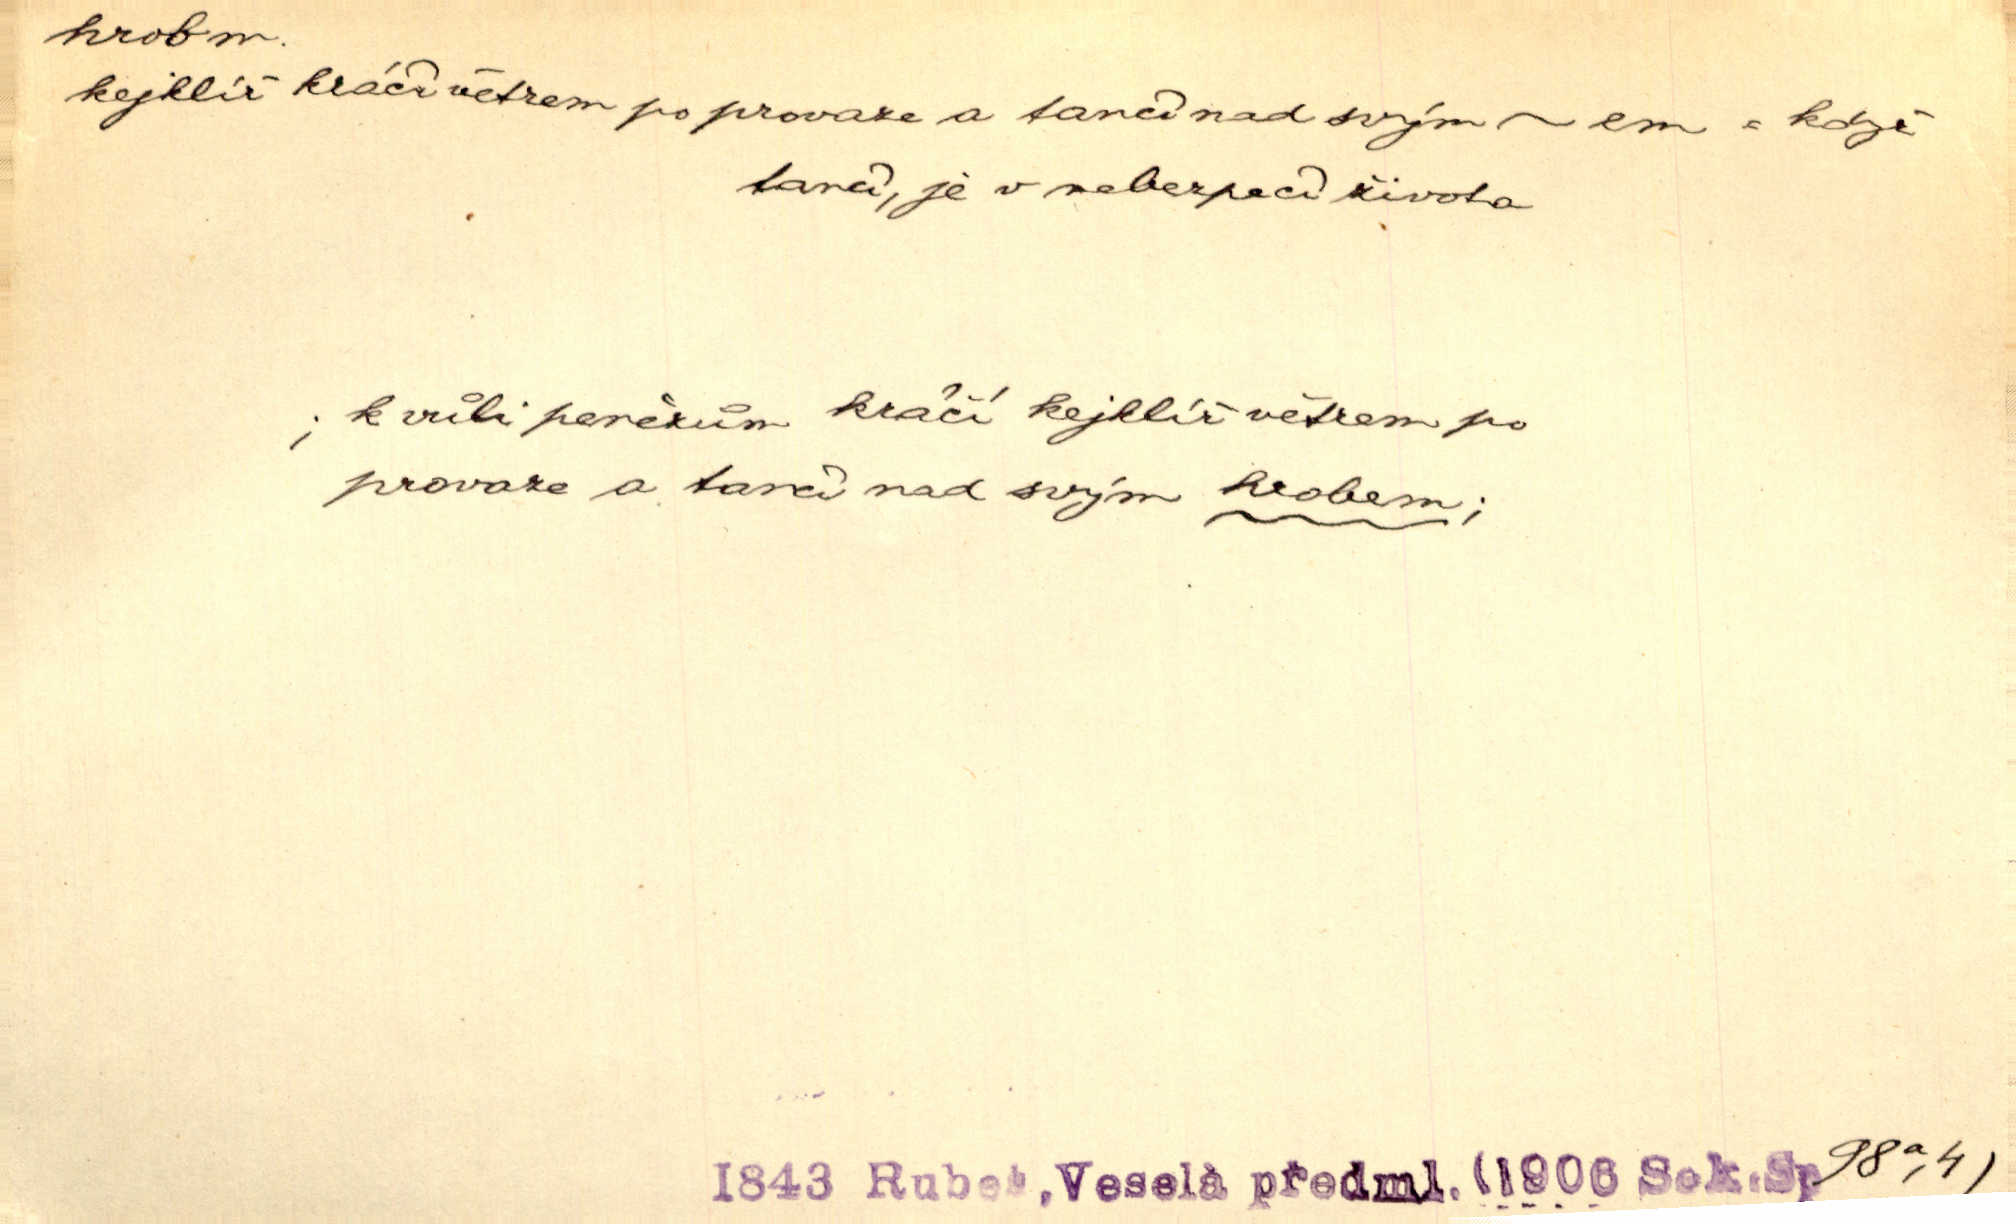 hrob m.
kejklíř kráčí větrem po provaze a tančí nad svým ~ em = když
tančí, je v nebezpečí života
; k vůli penězům kráčí kejklíř větrem po
provaze a tančí nad svým hrobem;
1843 Rubeš, Veselá předml. (1906 Sek. Sp 98a,4)